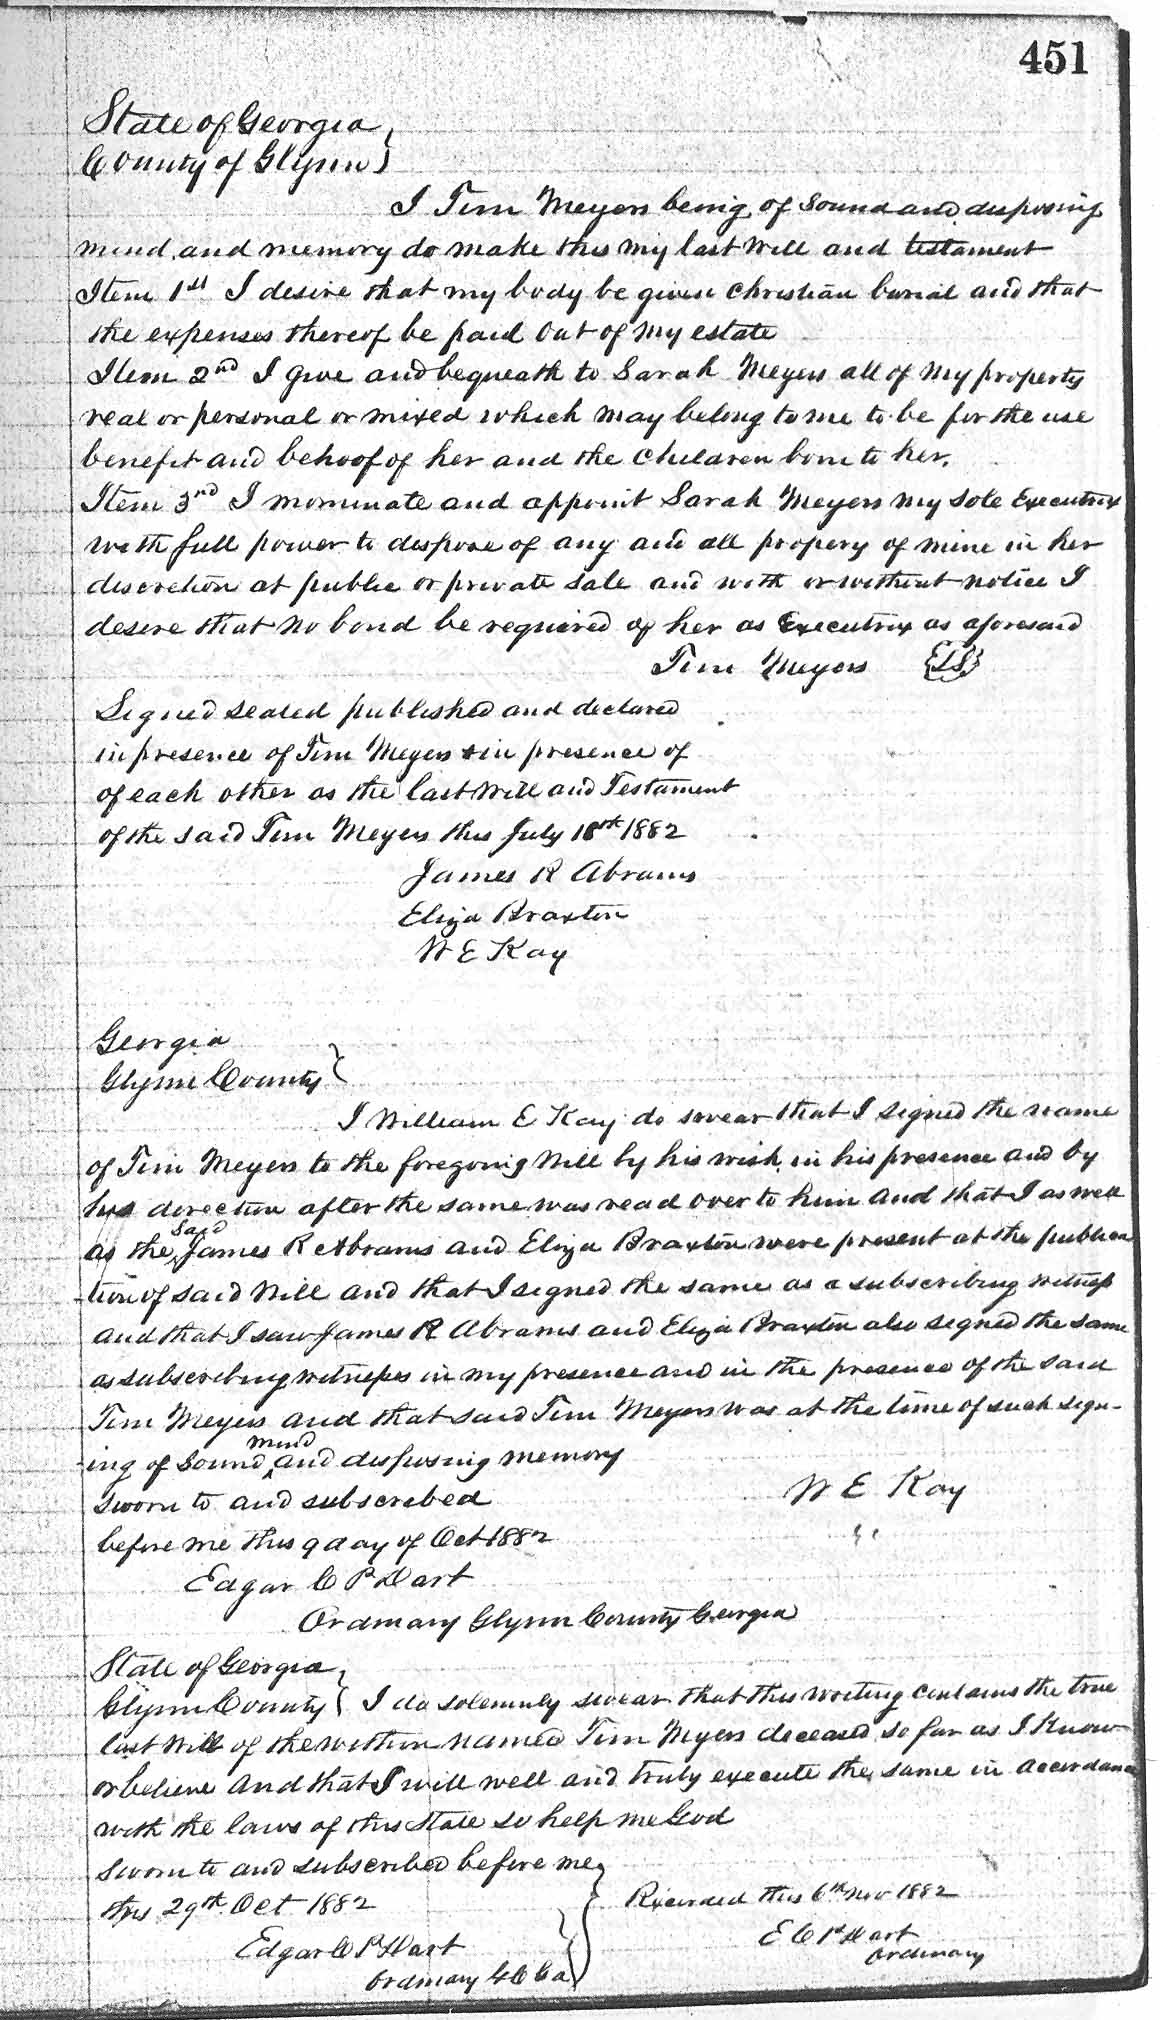 451
State of Georgia
County of Glynn
I Tim Meyers being of sound and disposing
mind, and memory do make this my last will and testament
Item 1st I desire that my body be given christian burial and that
the expenses thereof be paid out of my estate
Item 2nd I give and bequeath to Sarah Meyers all of my property
real or personal or mixed which may belong to me to be for the use
benefit and behoof of her and the children born to her.
Item 3rd I nominate and appoint Sarah Meyers my sole Executrix
with full power to dispose of any and all propery of mine in her
discretion at public or private sale and with or without notice I
desire that no bond be required of her as Executrix as aforesaid
Tim Meyers {LS}
Signed sealed published and declared
in presence of Tim Meyers & in presence of
of each other as the last Will and Testament
of the said Tim Meyers this July 18th 1882
James R Abrams
Eliza Braxton
W E Kay
Georgia
Glynn County
I William E Kay do swear that I signed the name
of Tim Meyers to the foregoing Will by his wish, in his presence and by
his direction after the same was read over to him and that I as well
as the said James R Abrams and Eliza Braxton were present at the publica
-tion of said Will and that I signed the same as a subscribing witness
and that I saw James R Abrams and Eliza Braxton also signed the same
as subscribing witnesses in my presence and in the presence of the said
Tim Meyers and that said Tim Meyers was at the time of such sign-
-ing of sound mind and disposing memory
Sworn to and subscribed W E Kay
before me this 9 day of Oct 1882
Edgar C P Dart
Ordinary Glynn County Georgia
State of Georgia
Glynn County I do solemnly swear that this writing contains the true
last Will of the within named Tim Myers deceased so far as I Know
or believe and that I will well and truly execute the same in accordance
with the laws of this State so help me God
Sworn to and subscribed before me
this 29th Oct 1882 Recorded this 6th Nov 1882
Edgar C P Dart E C P Dart
Ordinary G C Ga Ordinary